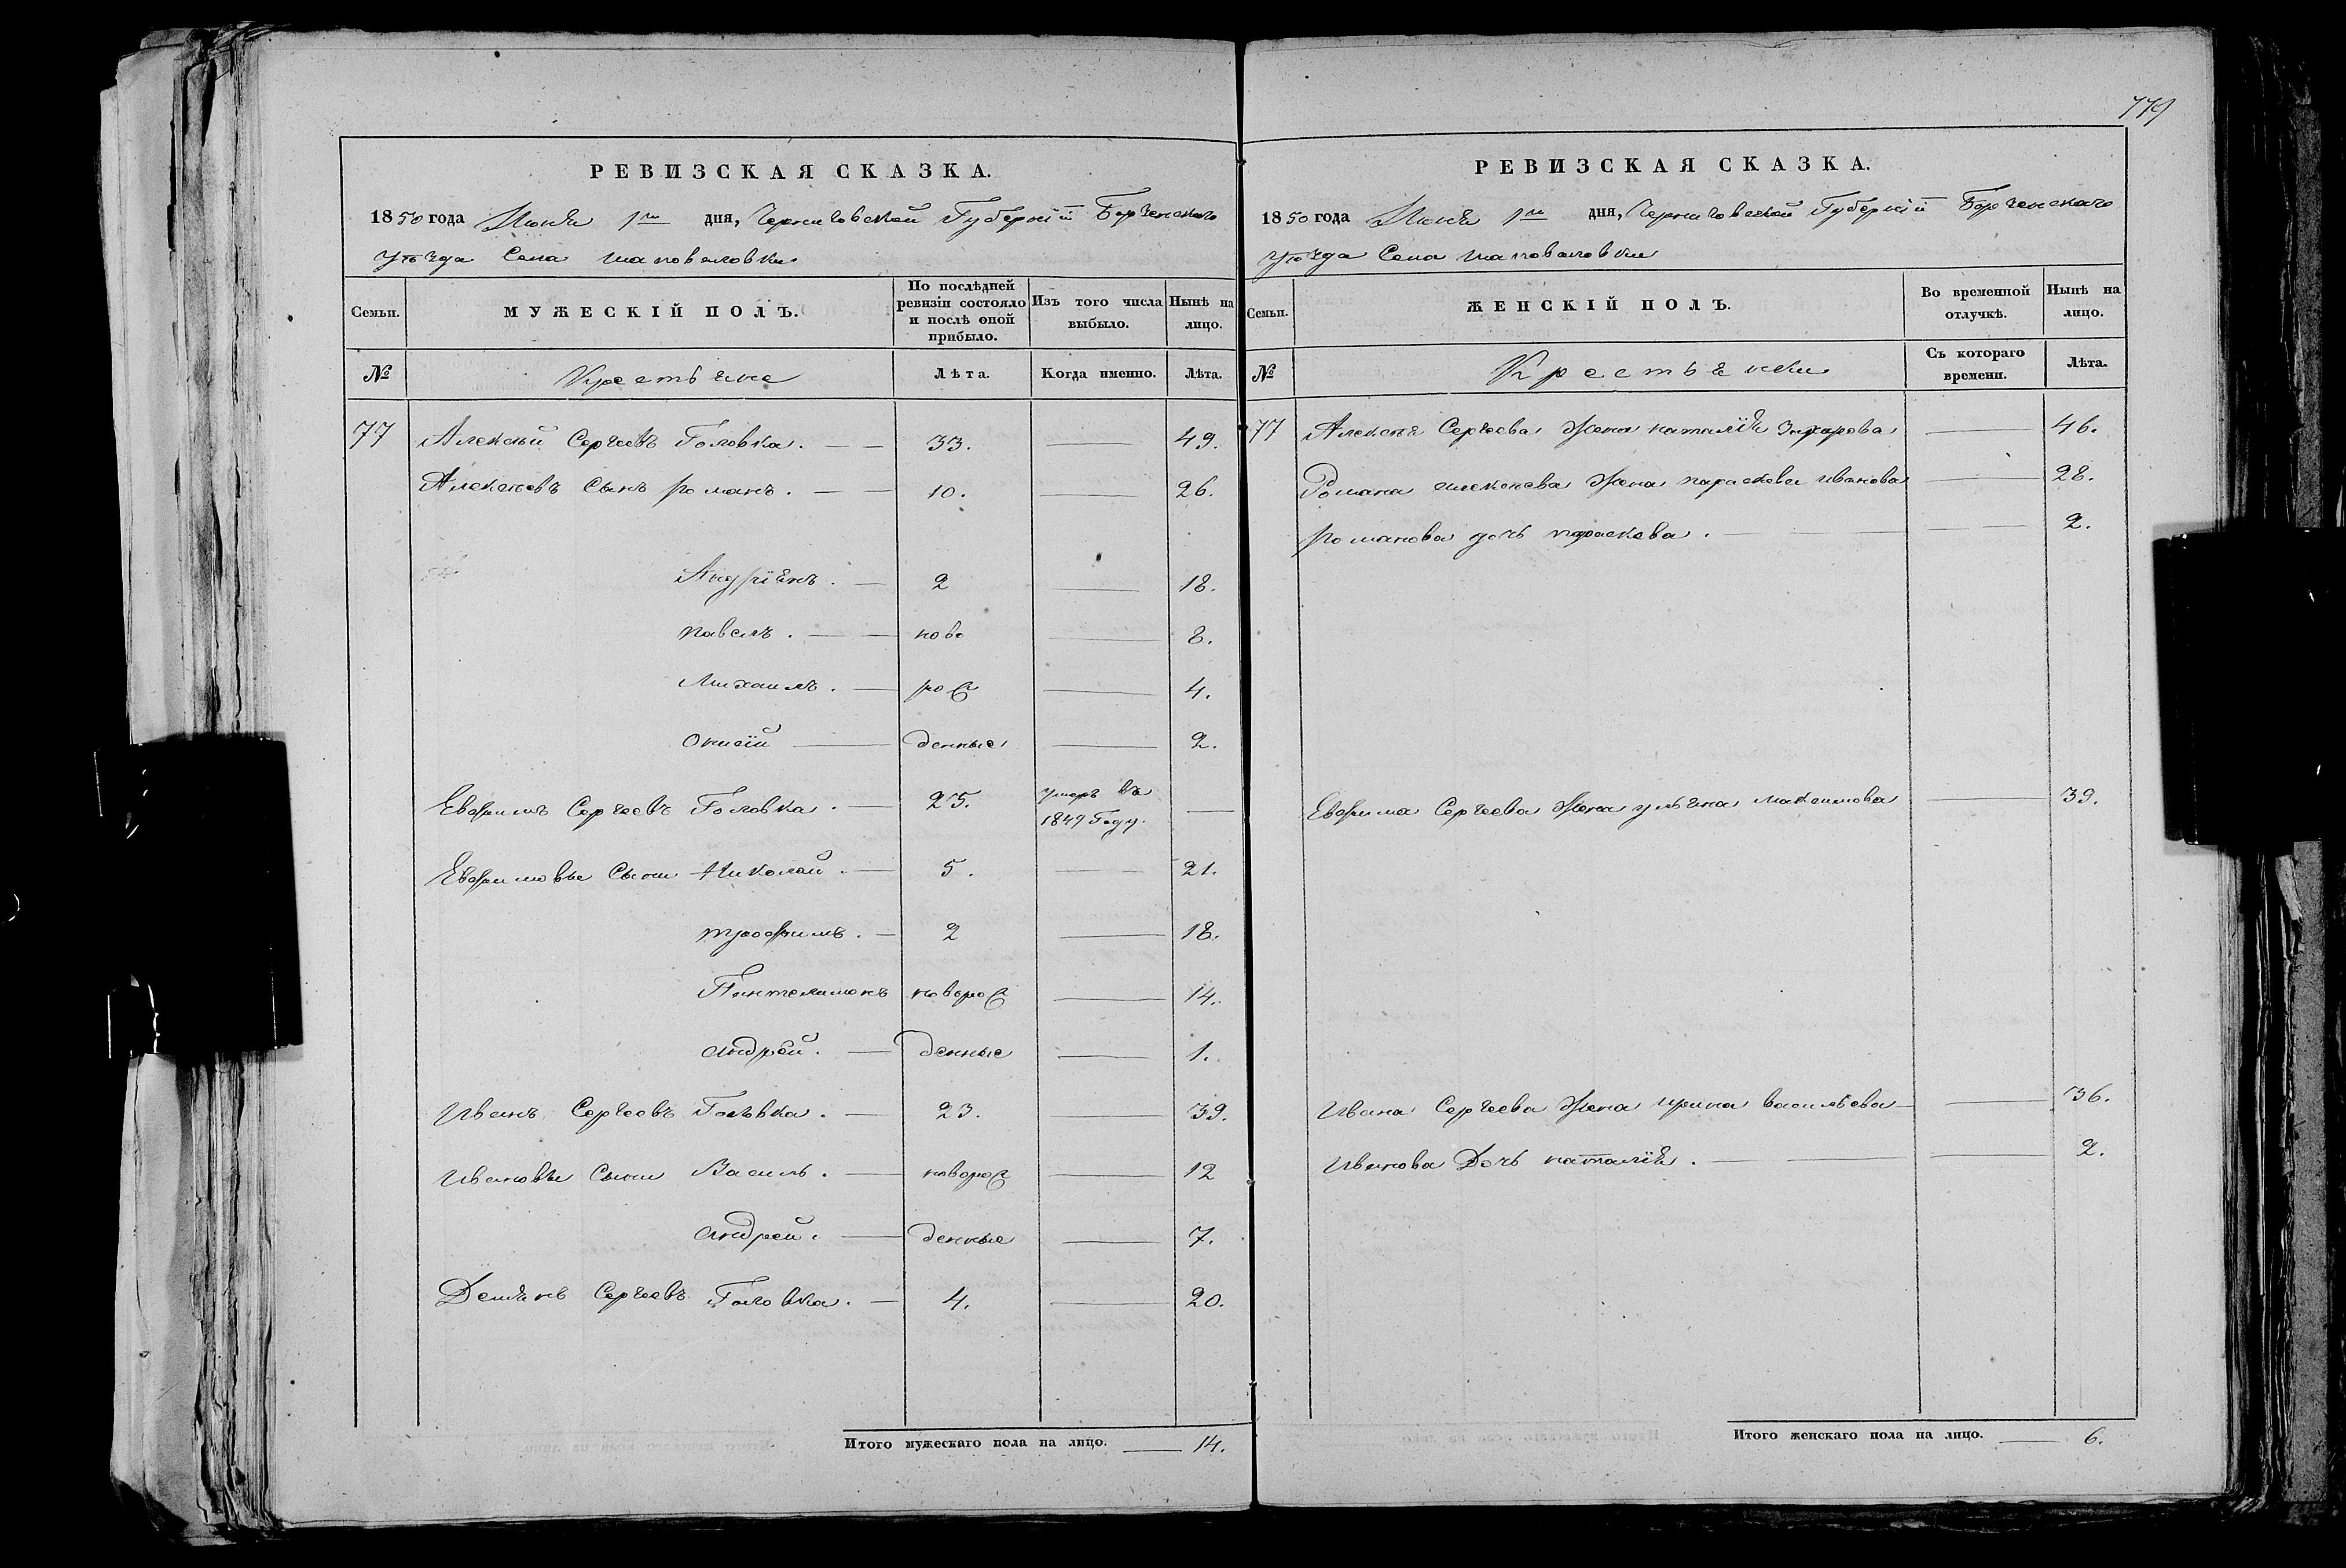 779
РЕВИЗСКАЯ СКАЗКА.
1850 года Июня 1го дня, Черниговской Губернїи Борзенскаго
уѣзда Села Шаповаловки
Семьи. МУЖЕСКІЙ ПОЛЪ. По послѣдней ревизіи состояло и послѣ оной прибыло. Изъ того числа выбыло. Нынѣ на лицо.
№ Крестьяне Лѣта. Когда именно. Лѣта.
77 Алексѣй Сергеевъ Головка. 33. 49.
Алексѣевъ Сынъ романъ. 10. 26.
Андріянъ. 2 18.
павелъ. ново 8.
Михаилъ. рож 4.
денные 2.
Евфимъ Сергеевъ Головка. 25. умеръ въ
1849 Году.
Евфимовы Сыни Николай. 5. 21.
трофимъ. 2 18.
Пантелимонъ новорож 14.
андрей. денные 1.
Иванъ Сергеевъ Головка. 23. 39.
Ивановы Сыни Василь. новорож 12
андрей. денные 7.
Демянъ Сергеевъ Головка. 4. 20.
Итого мужескаго пола на лицо. 14.
РЕВИЗСКАЯ СКАЗКА.
1850 года Июня 1го дня, Черниговской Губернїи Борзенскаго
уѣзда Села Шаповаловки
Семьи. ЖЕНСКІЙ ПОЛЪ. Во временной отлучкѣ. Нынѣ на лицо.
№ Крестьянки Съ котораго времени. Лѣта.
77 Алексѣя Сергеева Жена наталїя Захарова 46.
Романа алексеева Жена параскева иванова 28.
романова дочь параскева. 2.
Евфима Сергеева Жена ульяна максимова 39.
Ивана Сергеева Жена ирина васильева 36.
Иванова Дочь наталїя. 2.
Итого женскаго пола на лицо. 6.